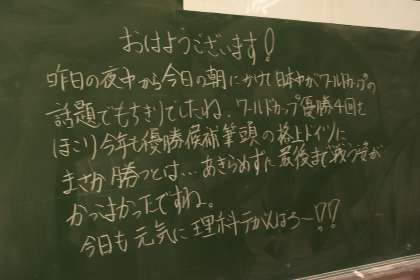 おはようございます!
昨日の夜中から今日の朝にかけて日本中がワールドカップの
話題でもちきりでしたね。ワールドカップ優勝4回を
ほこり今年も優勝候補筆頭の格上ドイツに
まさか勝つとは…あきらめずに最後まで戦う姿が
かっこよかったですね。
今日も元気に理科テがんばろ〜!!